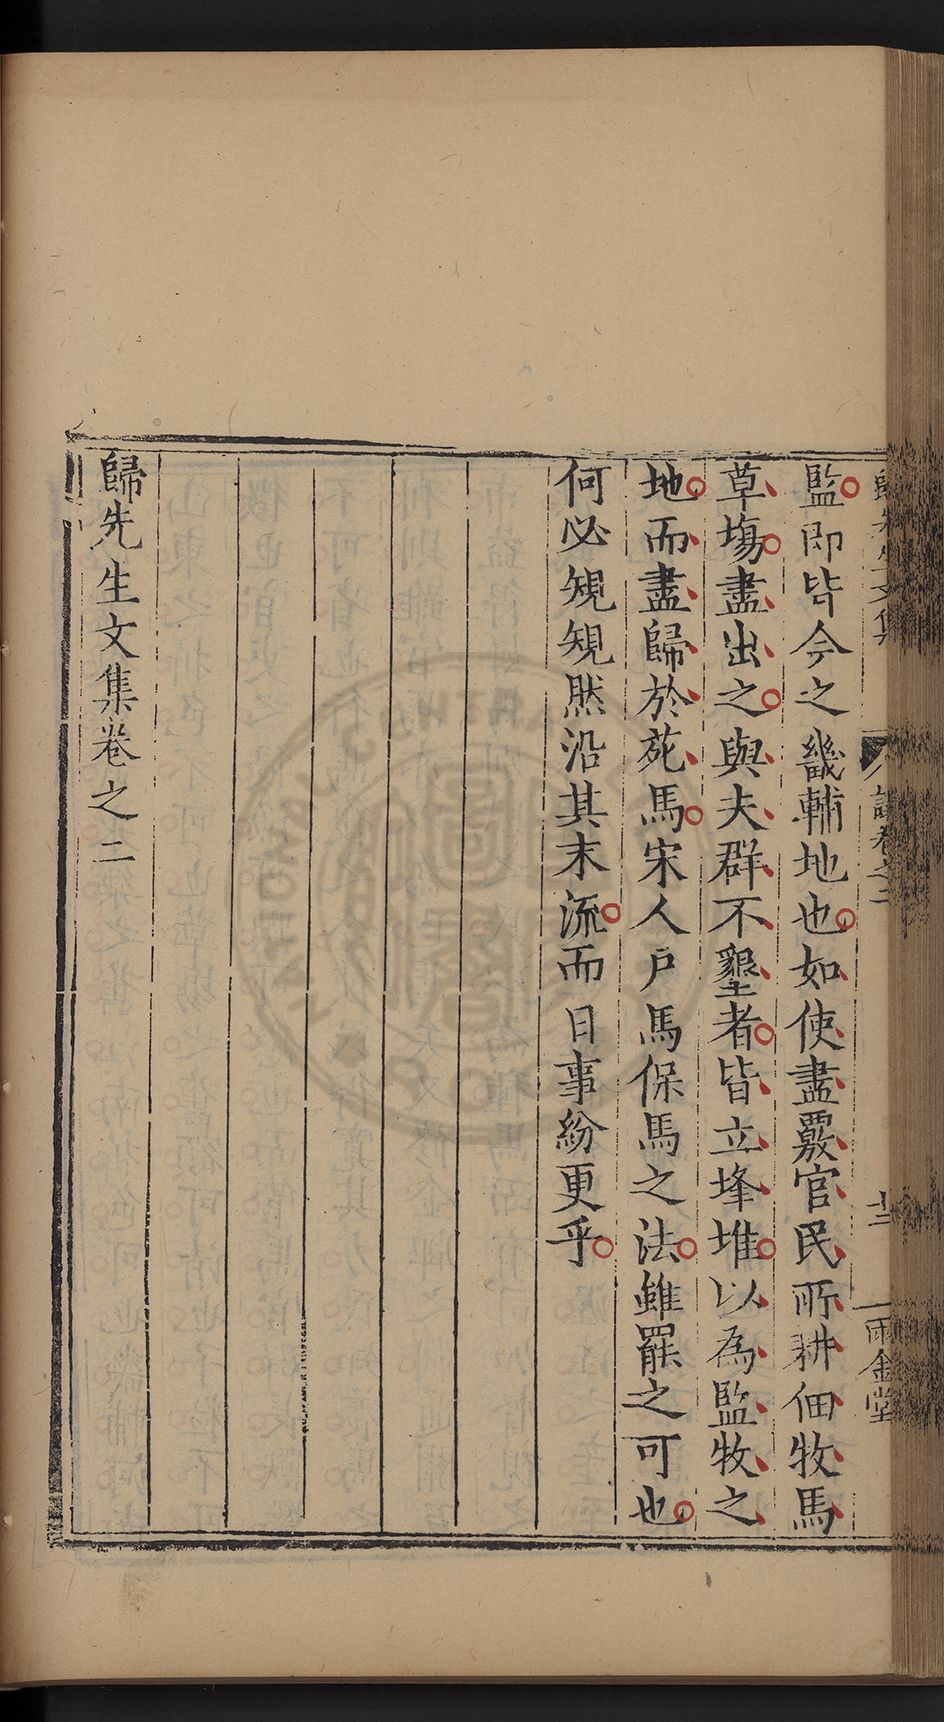 歸先生文集
議卷之二
十二
雨金堂
監即皆今之畿輔地也如使盡覈官民所耕佃牧馬
草塲盡出之與夫群不墾者皆立埄堆以為監牧之
地而盡歸於苑馬宋人戶馬保馬之法雖罷之可也
何必規規然沿其末流而日事紛更乎
歸先生文集卷之二